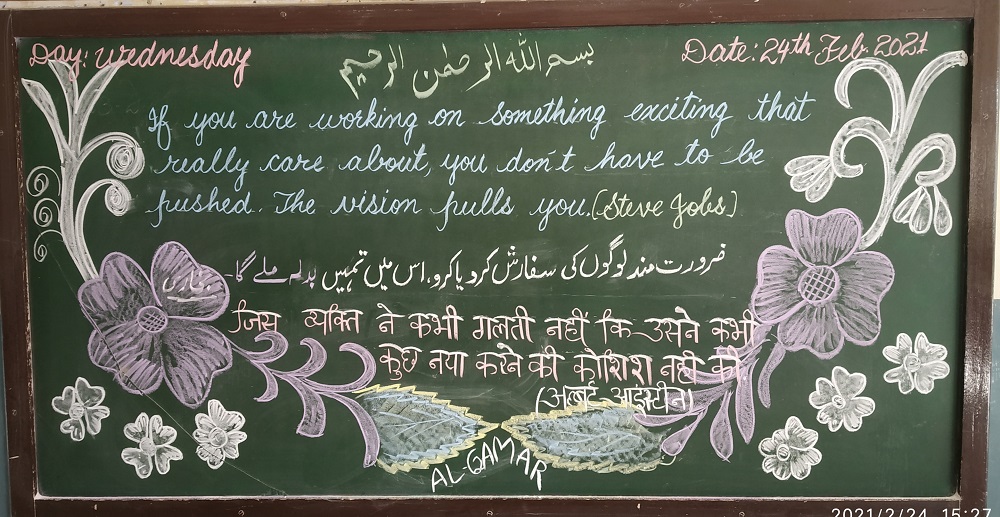 Day: Wednesday
بسم الله الرحمٰن الرحيم
Date: 24th Feb. 2021
If you are working on something exciting that
really care about, you don't have to be
pushed. The vision pulls you. (Steve Jobs)
ضرورت مند لوگوں کی سفارش کر دیا کرو، اس میں تمہیں بدلہ ملے گا۔ بخاری
जिस व्यक्ति ने कभी गलती नहीं कि उसने कभी
कुछ नया करने की कोशिश नही की
(अल्बर्ट-आइंस्टीन)
AL-QAMAR
2021/2/24 15:27